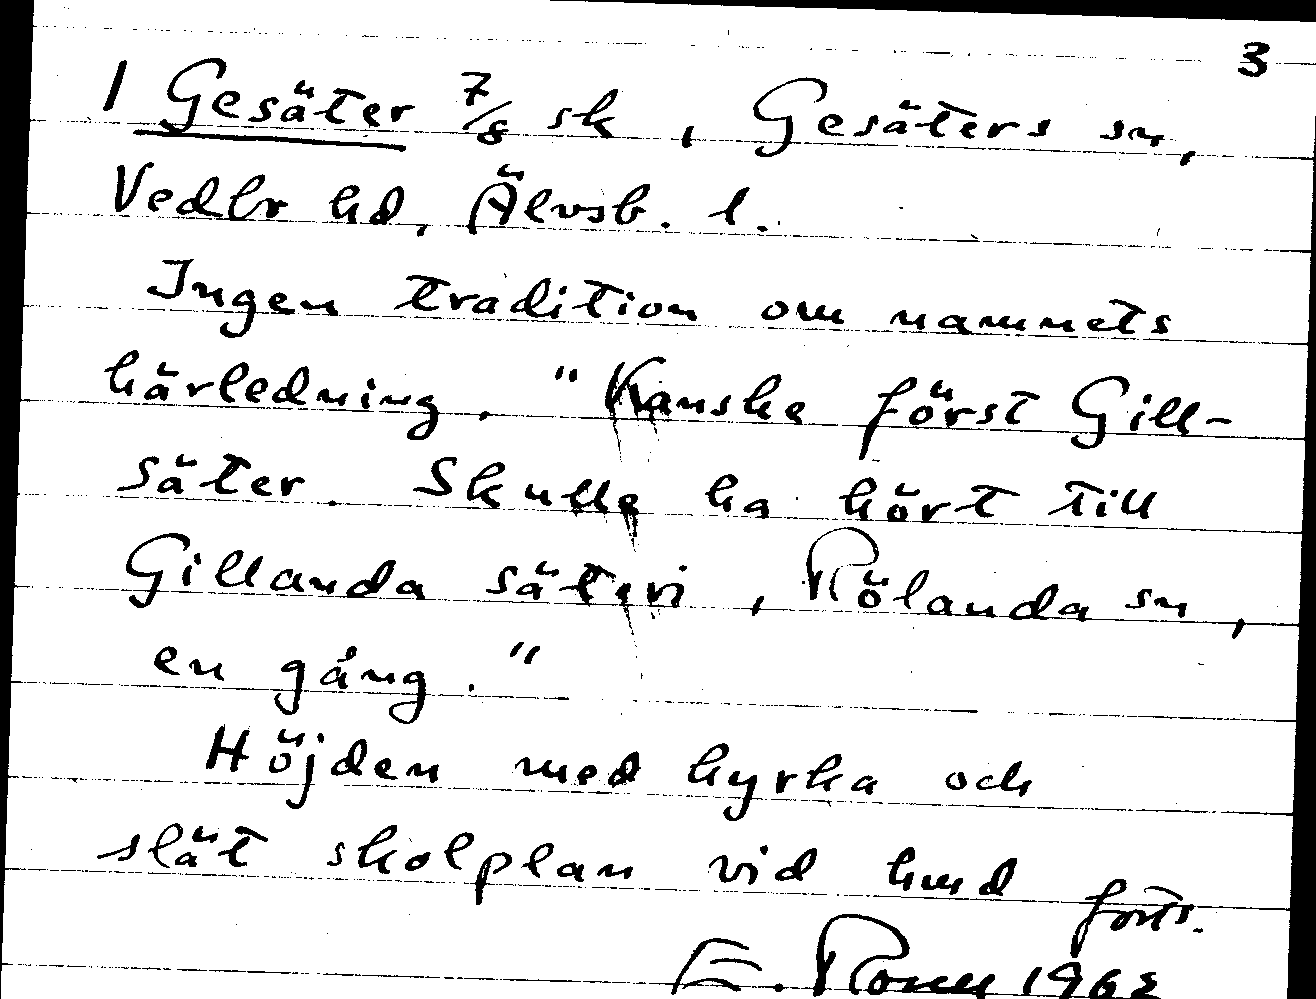 3
1 Gesäter 7/8 sk, Gesäters sn,
Vedbr hd, Älvsb. l.
Ingen tradition om namnets
härledning. "Kanske först Gill-
säter. Skulle ha hört till
Gillanda säteri, Rölanda sn,
en gång."
Höjden med kyrka och
slät skolplan vid hmd
forts.
E. 1962